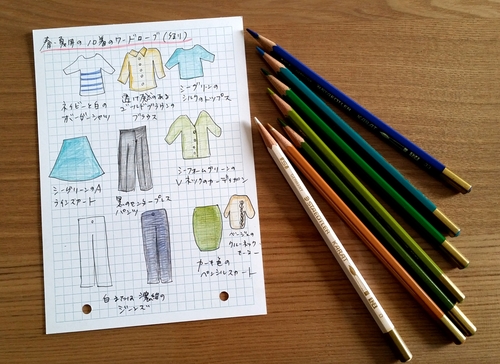 春・夏用の10着のワードローブ(つもり)
ネイビーと白の
ボーダーシャツ
透け感のある
ゴールドブラウンの
ブラウス
シーグリーンの
シルクのトップス
シーグリーンのA
ラインスカート
黒のセンタープレス
パンツ
シーフォームグリーンの
Vネックのカーディガン
白または濃紺の
ジーンズ
カーキ色の
ペンシルスカート
ベージュの
クルーネック
セーター